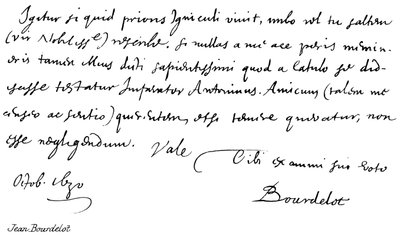 Igitur si quid prioris Igniculi vivit, vel tu saltem
(vir Nobilisse) rescribe. Si nullas a me acceperis memin-
eris tamen illius dicti sapientissimi quod a Catulo se did-
icisse testatur Imperator Antoninus. Amicum (talem me
censeo ac sentio) querentem, etsi temere queratur, non
esse negligendum. Vale
Tibi ex animi sui voto
Octob.
Bourdelot
Jean Bourdelot